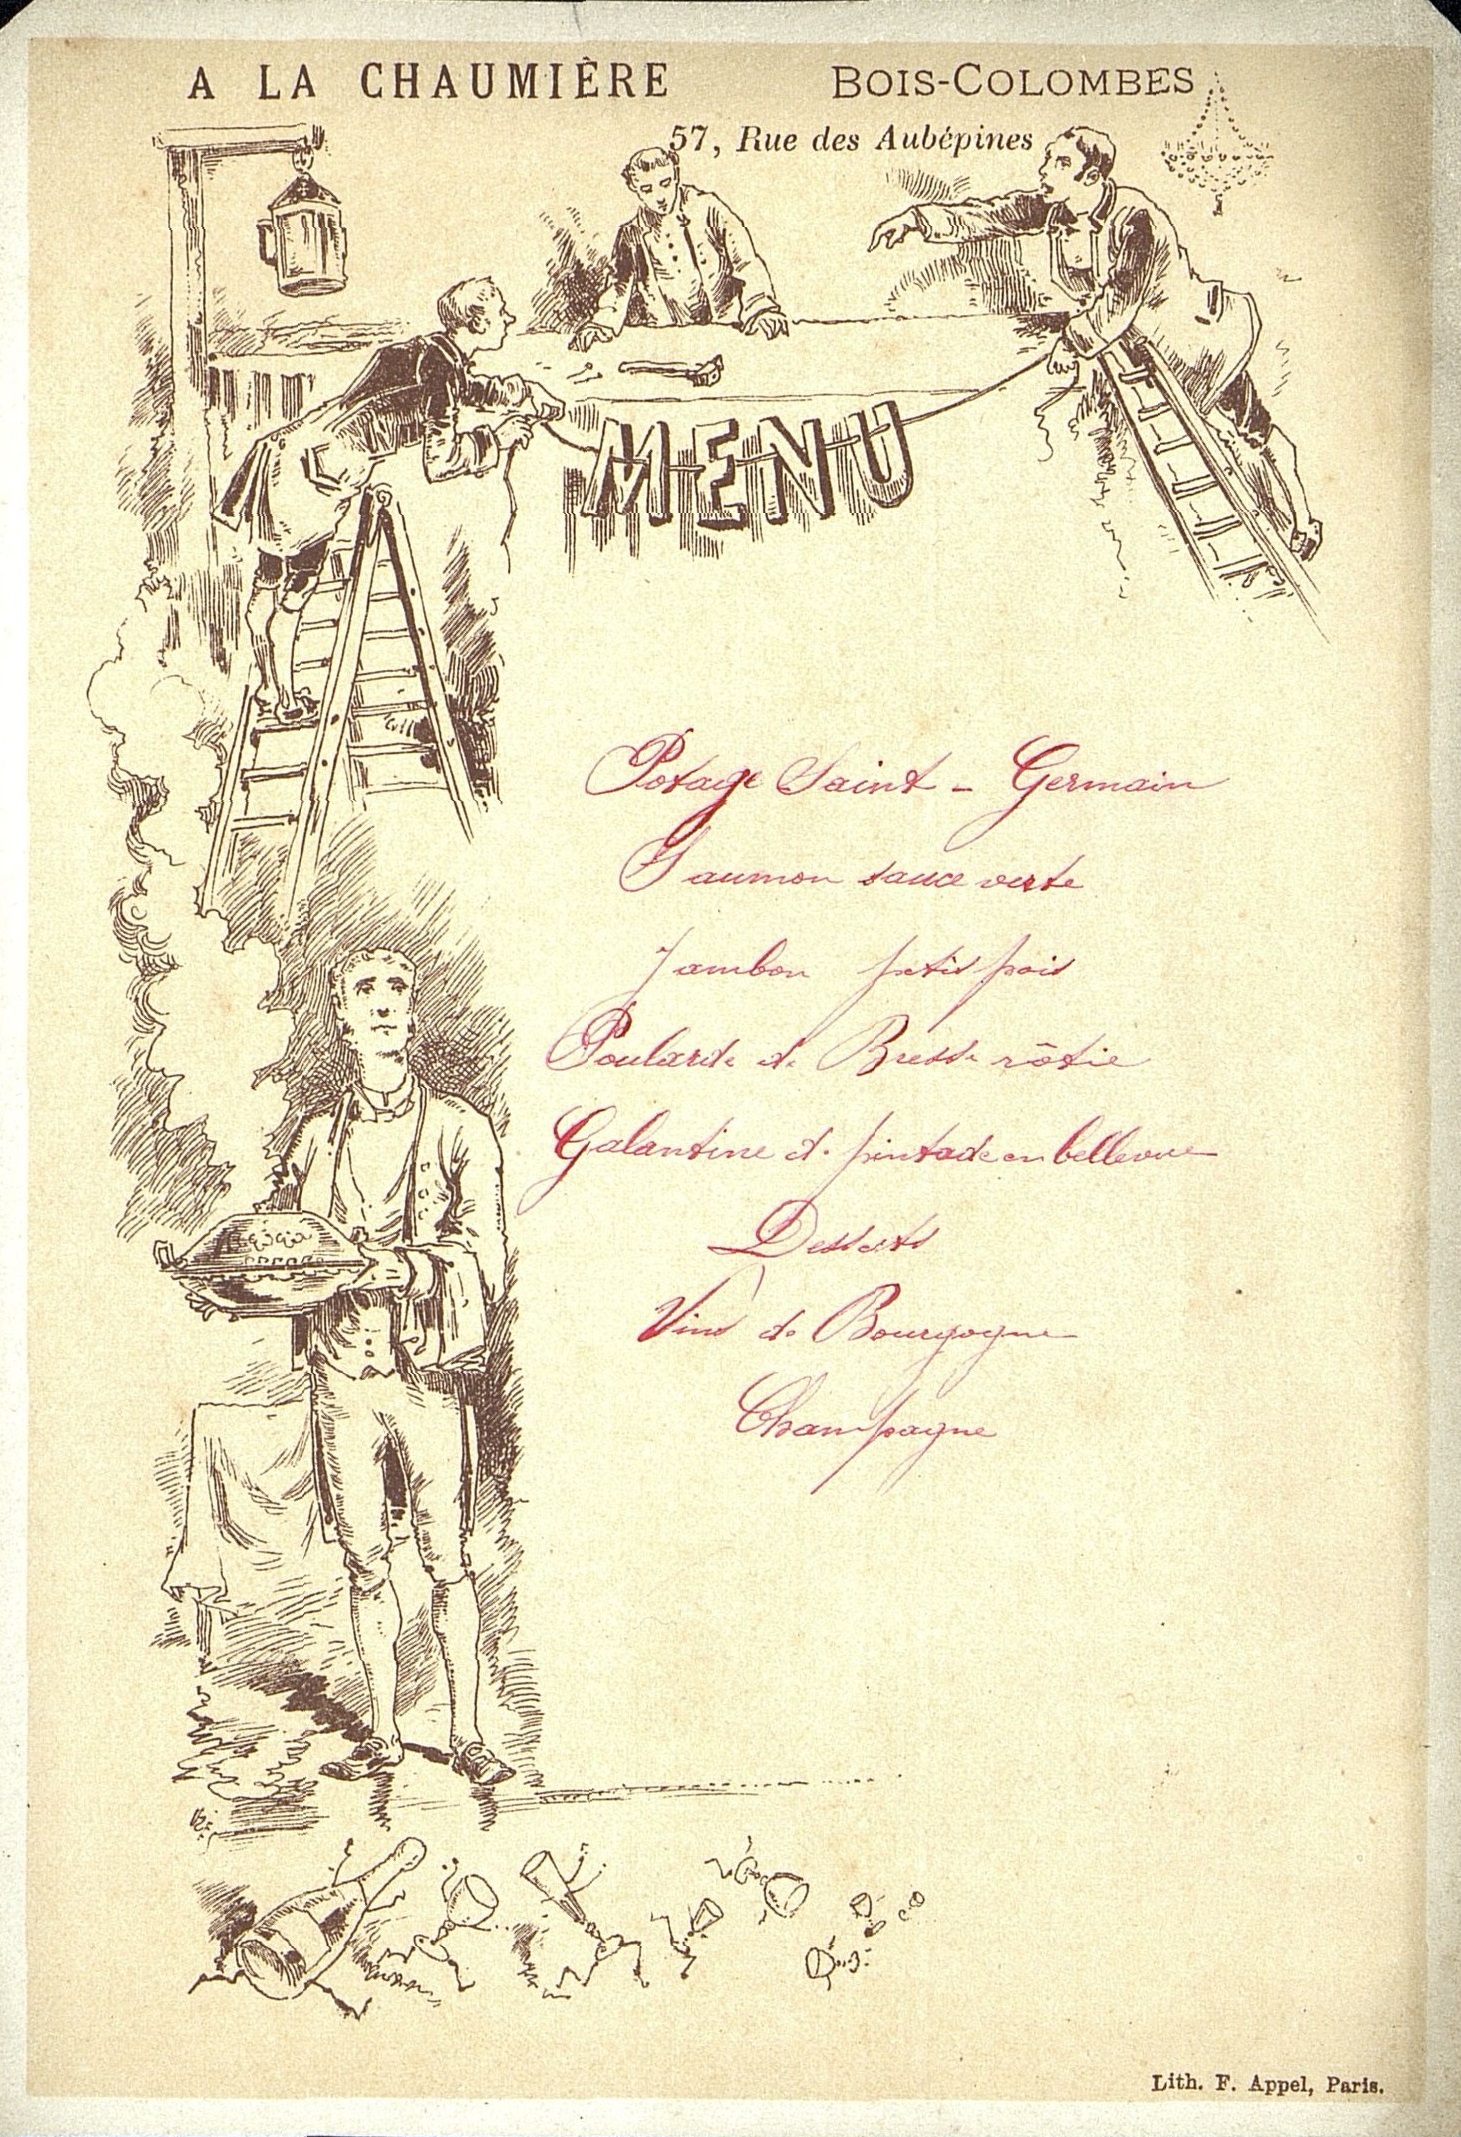 A LA CHAUMIÈRE BOIS-COLOMBES
57, Rue des Aubépines
MENU
Potage Saint-Germain
Saumon sauce verte
Jambon petits pois
Poularde de Bresse rôtie
Galantine de pintade en bellevue
Desserts
Vins de Bourgogne
Champagne
Lith. F. Appel, Paris.